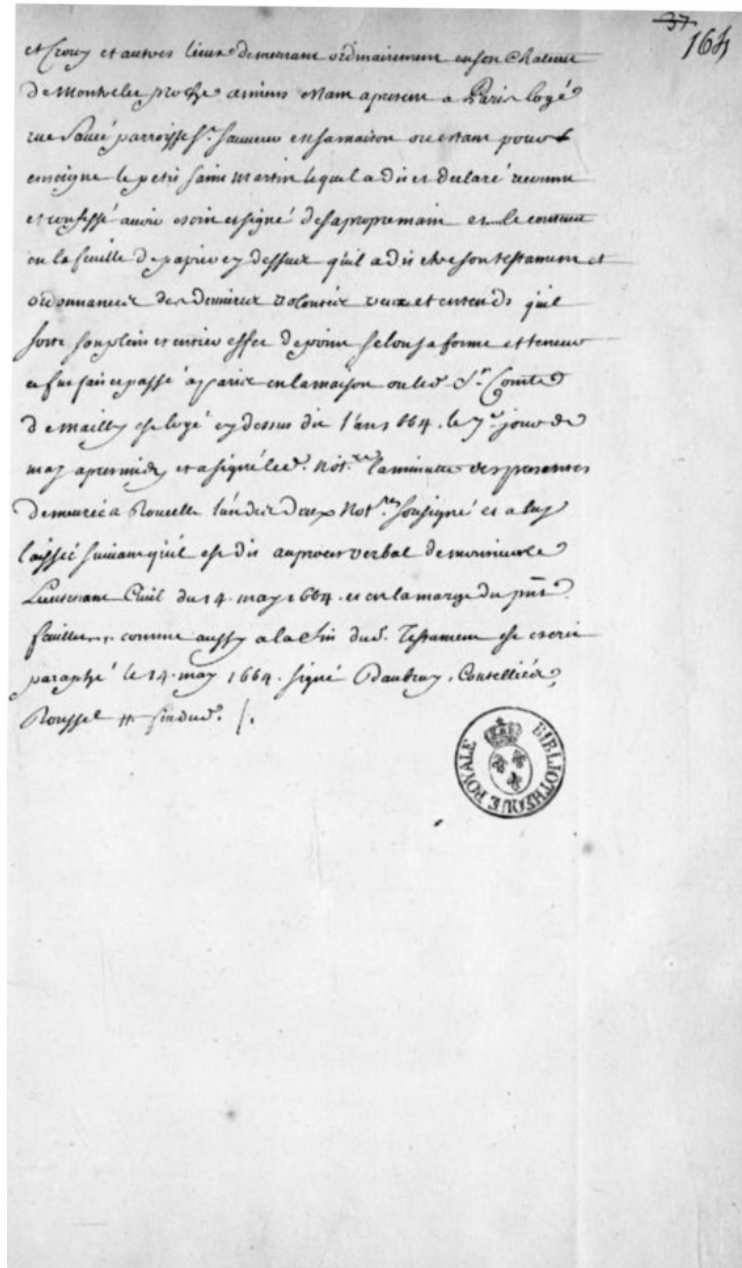 37
164
et Crouy et autres lieux demeurant ordinairement en son Chateau
de Monthelet proche amiens estant apresent a Paris logé
rue Parroisse St. Sauveur en sa maison ou estant pour
enseigne le petit saint martin lequel a dit et declaré reconnu
et confessé avoir escrit et signé de sa propre main et le contenu
en la feuille de papier cy dessus qu'il a dit estre son testament et
ordonnance de derniere volonté veux et entends qu'il
sorte son plein et entier effet de point selon sa forme et teneur
ce fut fait et passé a paris en la maison ou led. Sr. Comte
de mailly est logé cy dessus dit l'an 1664. le 7e. jour de
may apres midy et a signé led. Not.re la minutte des presentes
demeurée a Rouselle l'un des deux Not.res sousigné et a luy
laissée suivant qu'il est dit au procez verbal de monsieur le
Lieutenant Civil du 14. may 1664. et en la marge du pnt
feuillet comme aussy a la fin dud. Testament est escrit
paraphé le 14. may 1664. signé Daubray, Conseillier,
Roussel #
BIBLIOTHEQUE ROYALE